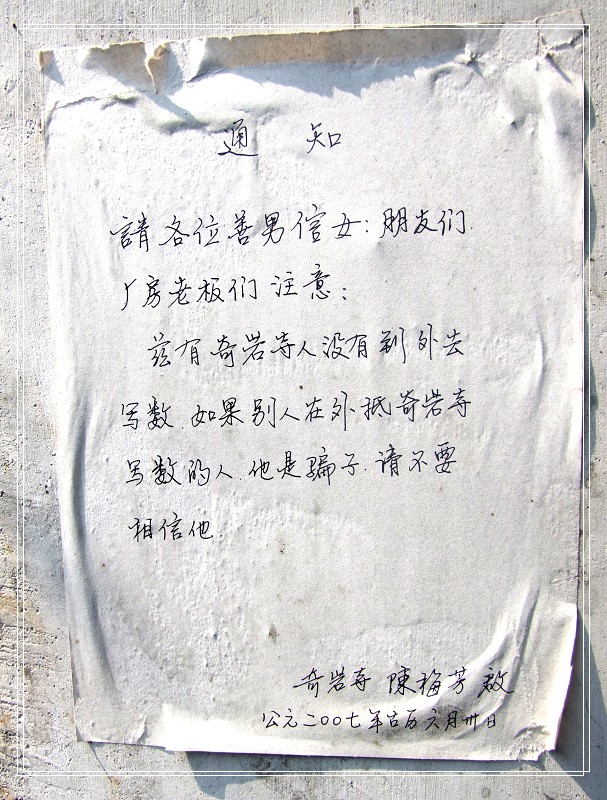 通 知
請各位善男信女:朋友们.
厂房老板们 注意:
兹有奇岩寺人没有到外去
写数 如果别人在外抵奇岩寺
写数的人.他是骗子.请不要
相信他.
奇岩寺 陳梅芳 啟
公元二00七年古历六月卅日